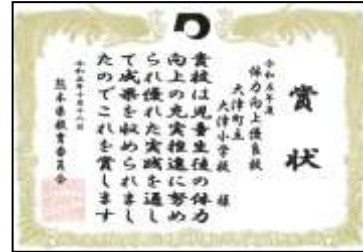 賞状
令和五年度
体力向上優良校
大津町立
大津小学校 様
貴校は児童生徒の体力
向上の充実推進に努め
られ優れた実践を通し
て成果を収められまし
たのでこれを賞します
令和五年十月十八日
熊本県教育委員会